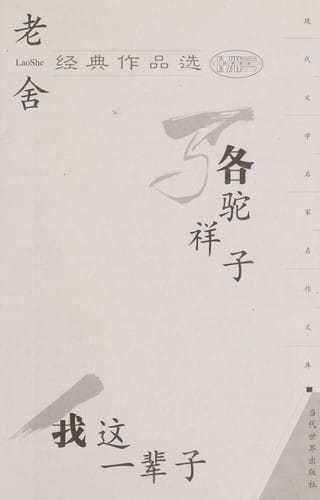 老舍
LaoShe
经典作品选
骆驼祥子
我这一辈子
现代文学名家名作文库
当代世界出版社